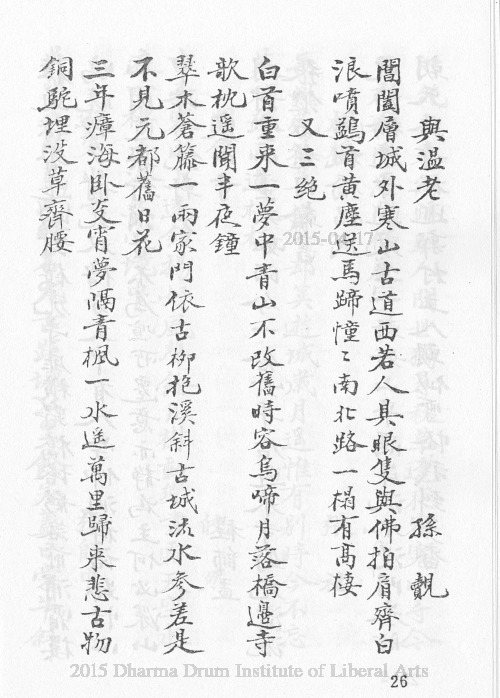 與溫老
孫覿
閶闔層城外寒山古道西若人具眼隻與佛拍肩齊白
浪噴鷁首黃塵送馬蹄憧〻南北路一榻有高棲
又三絶
白首重来一夢中青山不改舊時容烏啼月落橋邉寺
歌枕遥聞半夜鐘
翠木蒼藤一兩家門依古柳抱溪斜古城流水参差是
不見元都舊日花
三年瘴海卧炎宵夢隔青楓一水遥萬里歸来悲古物
銅駝埋没草齊腰
2015-04-17
2015 Dharma Drum Institute of Liberal Arts
26